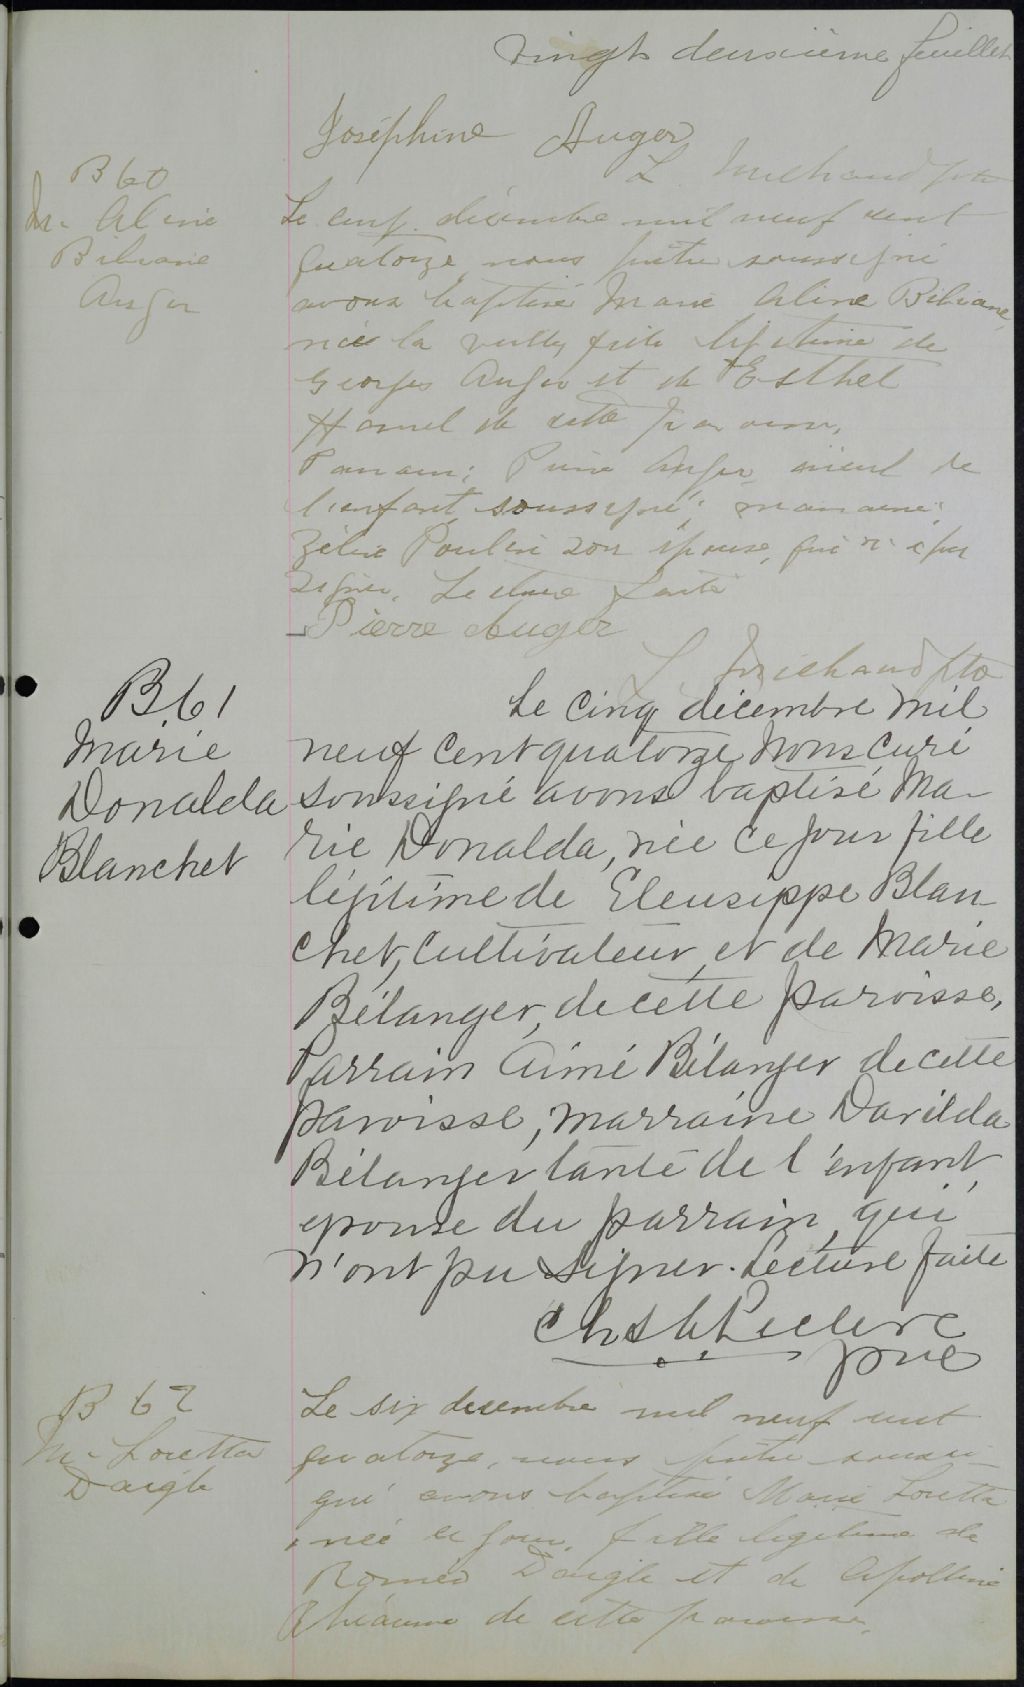 vingt deuxième feuillet
Joséphine Auger
L. Michaud ptre
B 60
M. Aline
Bibiane
Auger
Le cinq décembre mil neuf cent
quatorze nous prêtre soussigné
avons baptisé Marie Aline Bibiane,
née la veille, fille légitime de
Georges Auger et de Esthel
Hamel de cette paroisse.
Parrain: Pierre Auger aieul de
l'enfant soussigné; marraine:
Zélie Poulin son épouse, qui n'a pu
signer. Lecture faite
Pierre Auger
L. Michaud ptre
B 61
Marie
Donalda
Blanchet
Le cinq décembre mil
neuf cent quatorze Nous curé
soussigné avons baptisé Ma-
rie Donalda, née ce jour fille
légitime de Eleusippe Blan-
chet, cultivateur, et de Marie
Bélanger, de cette paroisse,
Parrain Aimé Bélanger de cette
paroisse, marraine Davilda
Bélanger tante de l'enfant,
epouse du parrain, qui
n'ont pu signer. Lecture faite
Leclerc
ptre
B 62
M. Loretta
Daigle
Le six decembre mil neuf cent
quatorze, nous prêtre soussi-
gné avons baptisé Marie Loretta
née ce jour, fille legitime de
Roméo Daigle et de Apolline
Rhéaume de cette paroisse.